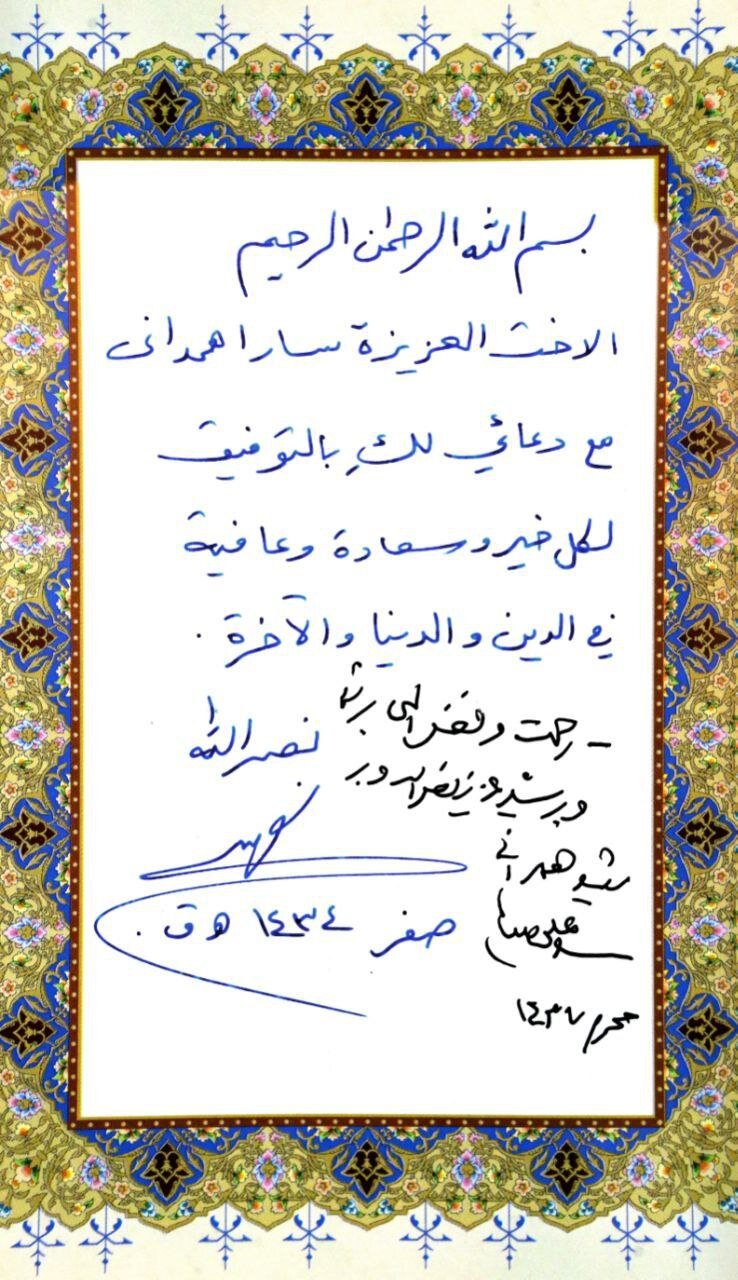 بسم الله الرحمٰن الرحيم
الاخت العزيزة سارا همدانى
مع دعائي لكِ بالتوفيق
لكل خير و سعادة و عافية
في الدين و الدنيا و الآخرة .
نصر الله
صفر ١٤٣٤ هـ ق .
– رحمت و فضل الهى بر شما
و بر شهيد
شهيد همدانى
محرم ١٤٣٧